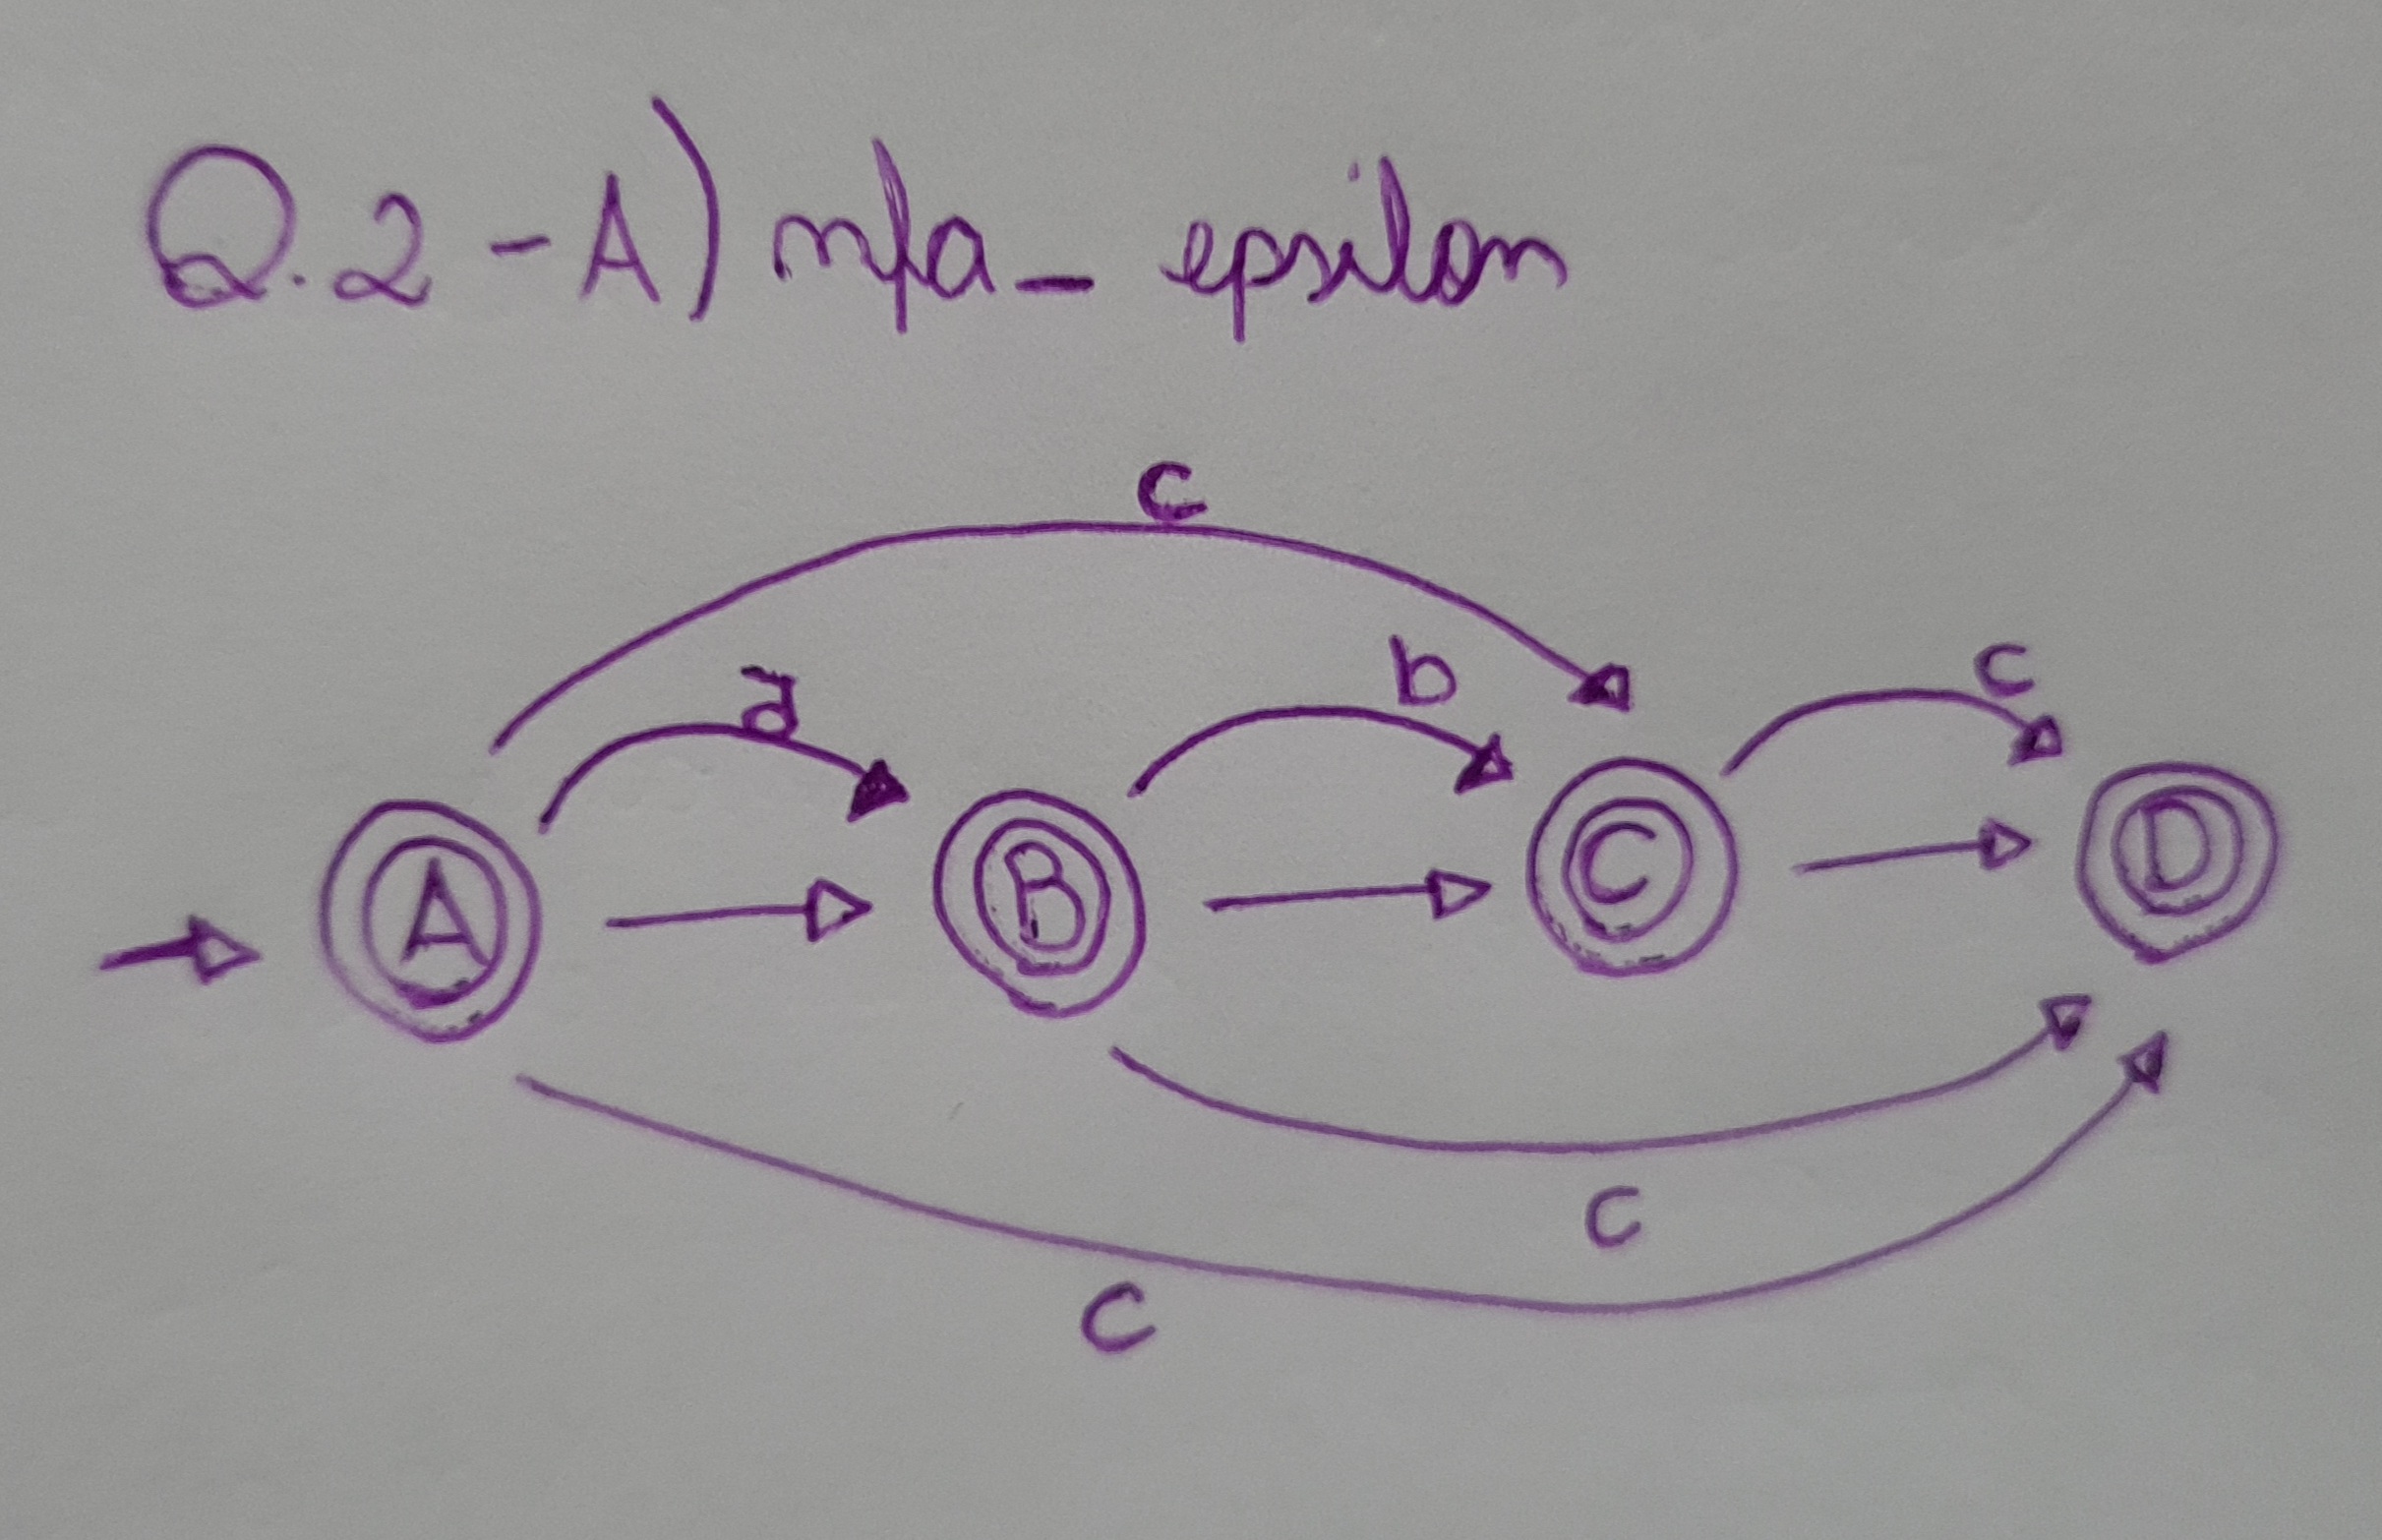 Q.2-A) nfa_ epsilon
c
a b c
A B C D
c
c